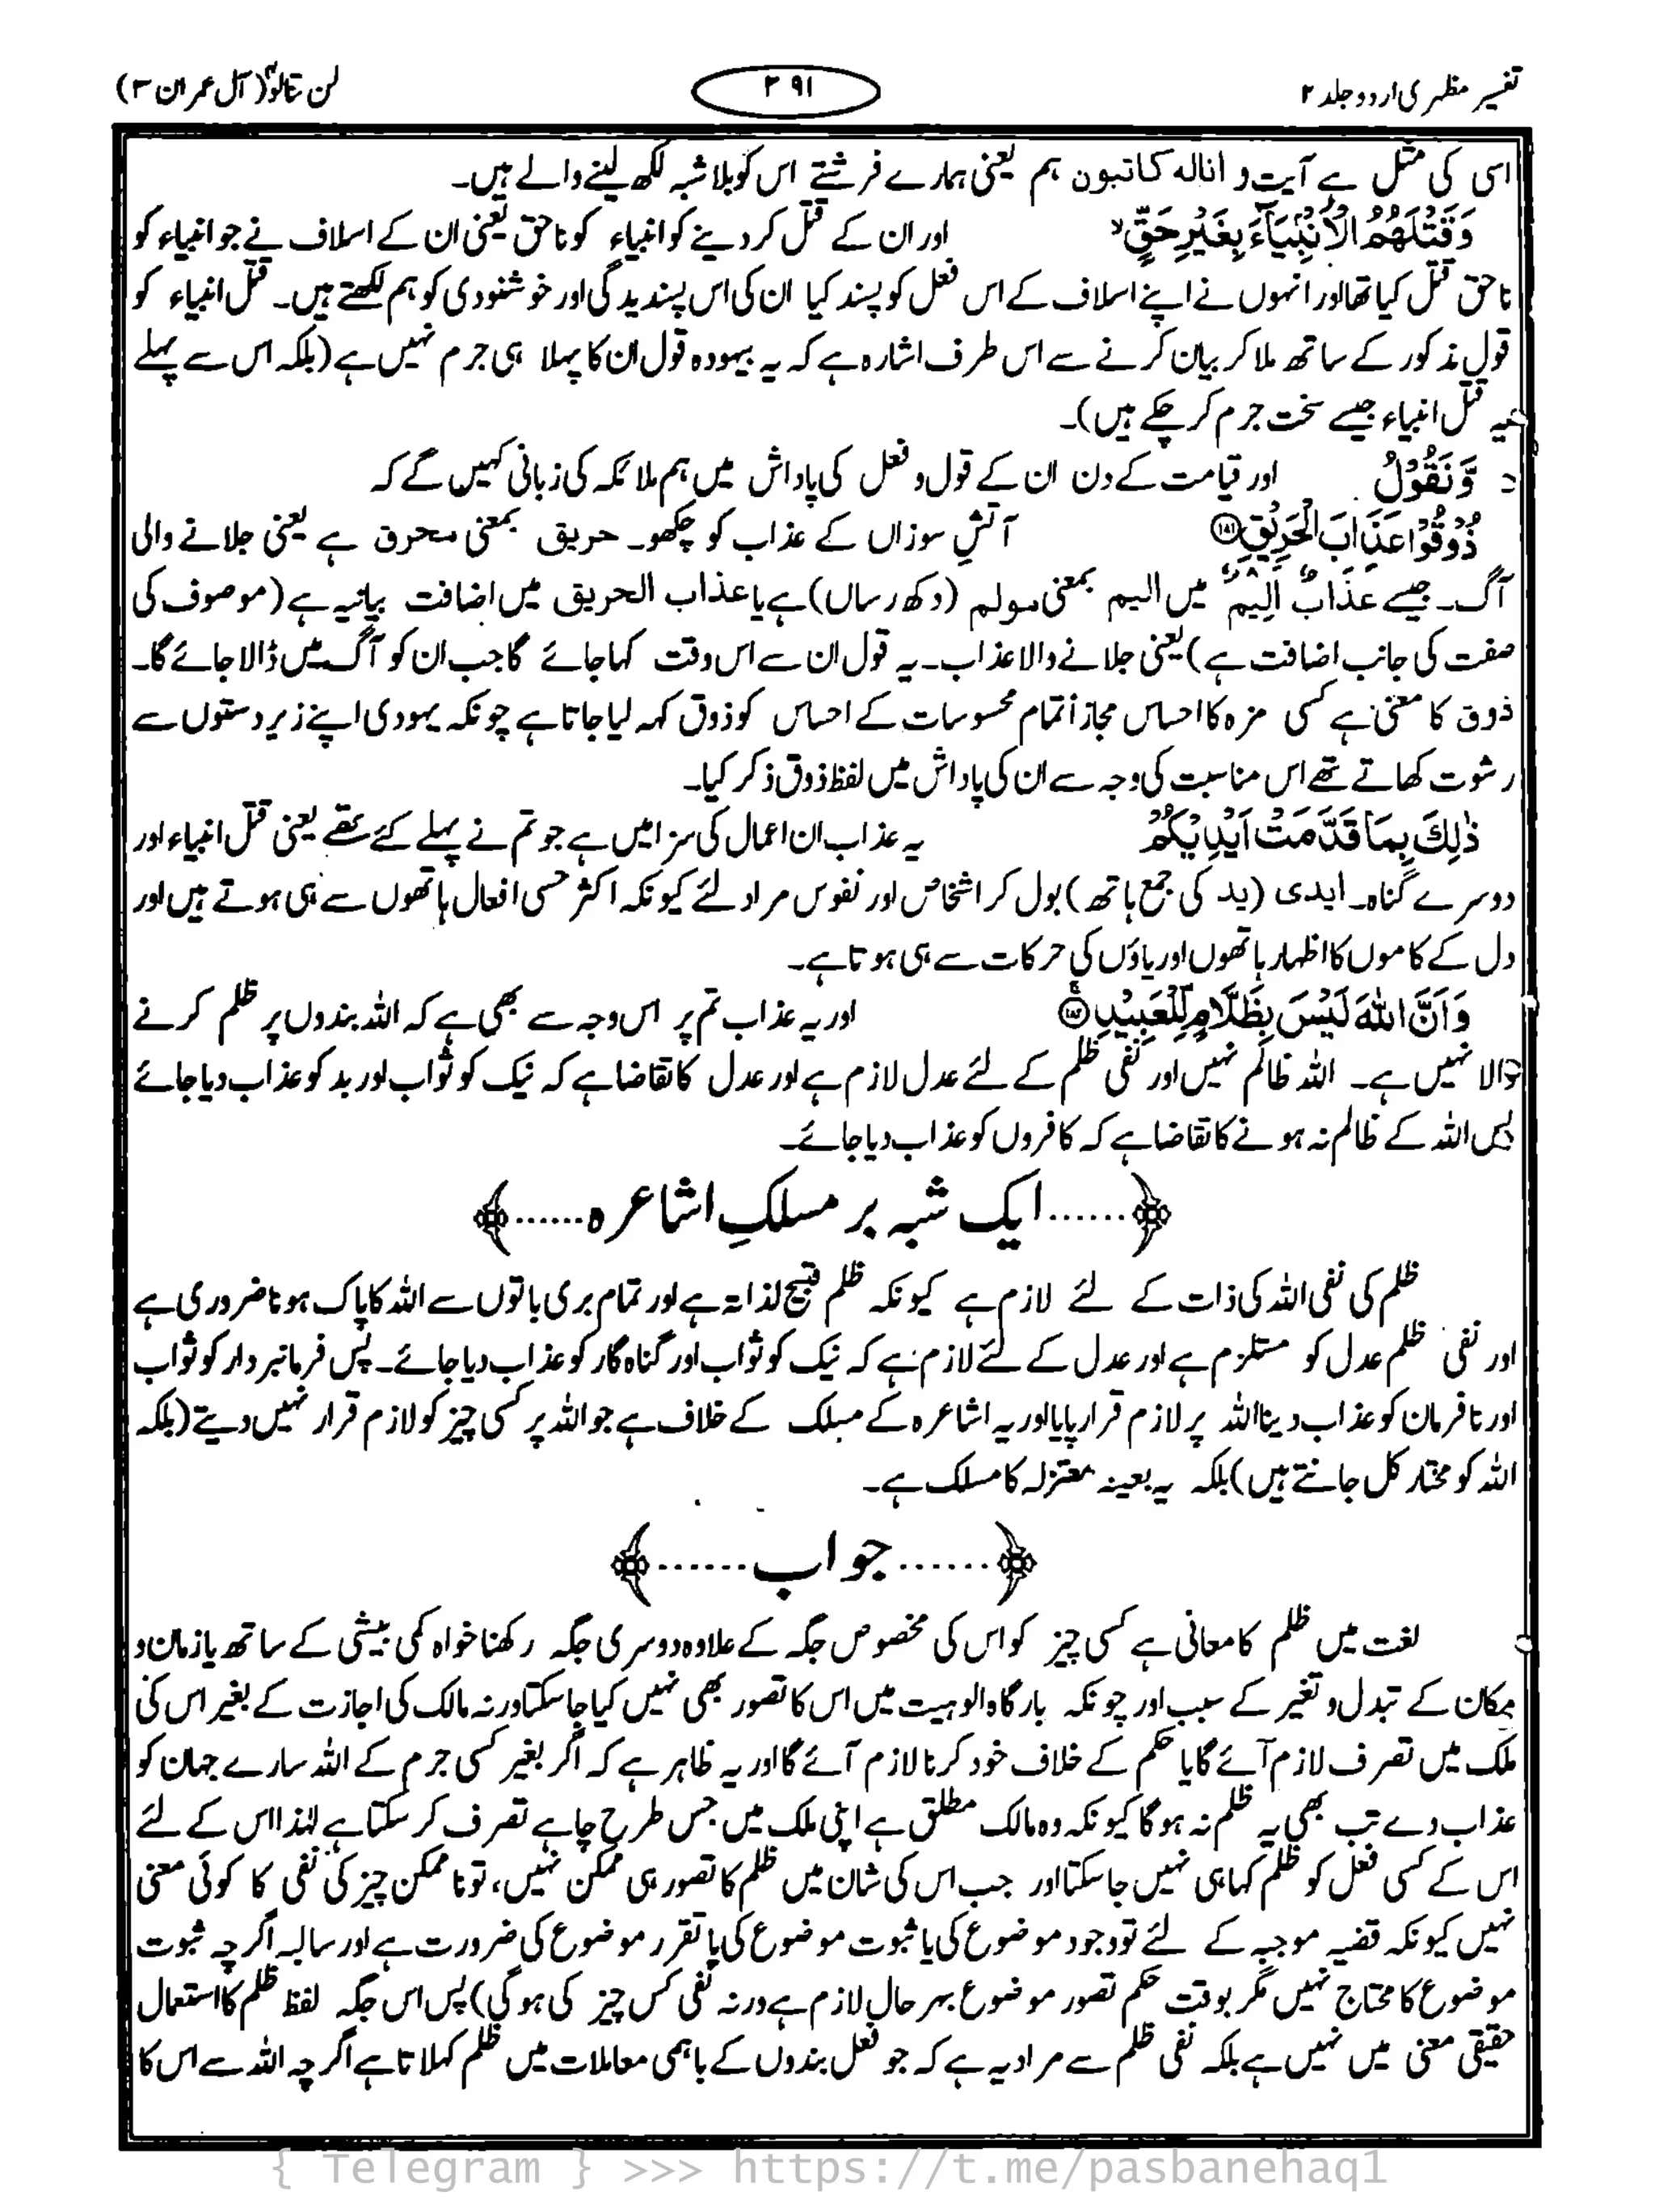 تفسیر مظہری اردو جلد ۲
۳۹۱
لن تنالوا (آل عمران ۳)
اسی کی مثل ہے آیت و انالہ کاتبون ہم یعنی ہمارے فرشتے اس کو بلاشبہ لکھ لینے والے ہیں۔
وَقَتْلَهُمُ الْاَنْۢبِيَآءَ بِغَيْرِ حَقٍّ ۙ اور ان کے قتل کر دینے کو انبیاء کو ناحق یعنی ان کے اسلاف نے جو انبیاء کو
ناحق قتل کیا تھا اور انہوں نے اپنے اسلاف کے اس فعل کو پسند کیا ان کی اس پسندیدگی اور خوشنودی کو ہم لکھتے ہیں۔ قتل انبیاء کو
قول مذکور کے ساتھ ملا کر بیان کرنے سے اس طرف اشارہ ہے کہ یہ بیہودہ قول ان کا پہلا ہی جرم نہیں ہے (بلکہ اس سے پہلے
یہ قتل انبیاء جیسے سخت جرم کر چکے ہیں)۔
وَّنَقُوْلُ اور قیامت کے دن ان کے قول و فعل کی پاداش میں ہم ملائکہ کی زبانی کہیں گے کہ
ذُوْقُوْا عَذَابَ الْحَرِيْقِ ۝۱۸۱ آتشِ سوزاں کے عذاب کو چکھو۔ حریق بمعنی محرق ہے یعنی جلانے والی
آگ۔ جیسے عَذَابٌ اَلِیْمٌ میں الیم بمعنی مولم (دکھ رساں) ہے یا عذاب الحریق میں اضافت بیانیہ ہے (موصوف کی
صفت کی جانب اضافت ہے) یعنی جلانے والا عذاب۔ یہ قول ان سے اس وقت کہا جائے گا جب ان کو آگ میں ڈالا جائے گا۔
ذوق کا معنی ہے کسی مزہ کا احساس مجازاً تمام محسوسات کے احساس کو ذوق کہہ لیا جاتا ہے چونکہ یہودی اپنے زیردستوں سے
رشوت کھاتے تھے اس مناسبت کی وجہ سے ان کی پاداش میں لفظ ذوق ذکر کیا۔
ذٰلِكَ بِمَا قَدَّمَتْ اَيْدِيْكُمْ یہ عذاب ان اعمال کی سزا میں ہے جو تم نے پہلے کئے تھے یعنی قتل انبیاء اور
دوسرے گناہ۔ ایدی (ید کی جمع ہاتھ) بول کر اشخاص اور نفوس مراد لئے کیونکہ اکثر حسی افعال ہاتھوں سے ہی ہوتے ہیں اور
دل کے کاموں کا اظہار ہاتھوں اور پاؤں کی حرکات سے ہی ہوتا ہے۔
وَاَنَّ اللّٰهَ لَيْسَ بِظَلَّامٍ لِّلْعَبِيْدِ ۝۱۸۲ اور یہ عذاب تم پر اس وجہ سے بھی ہے کہ اللہ بندوں پر ظلم کرنے
والا نہیں ہے۔ اللہ ظالم نہیں اور نفی ظلم کے لئے عدل لازم ہے اور عدل کا تقاضا ہے کہ نیک کو ثواب اور بد کو عذاب دیا جائے
پس اللہ کے ظالم نہ ہونے کا تقاضا ہے کہ کافروں کو عذاب دیا جائے۔
﴿......ایک شبہ بر مسلکِ اشاعرہ......﴾
ظلم کی نفی اللہ کی ذات کے لئے لازم ہے کیونکہ ظلم قبیح لذاتہ ہے اور تمام بری باتوں سے اللہ کا پاک ہونا ضروری ہے
اور نفی ظلم عدل کو مستلزم ہے اور عدل کے لئے لازم ہے کہ نیک کو ثواب اور گناہ گار کو عذاب دیا جائے۔ پس فرمانبردار کو ثواب
اور نافرمان کو عذاب دینا اللہ پر لازم قرار پایا اور یہ اشاعرہ کے مسلک کے خلاف ہے جو اللہ پر کسی چیز کو لازم قرار نہیں دیتے (بلکہ
اللہ کو مختار کل جانتے ہیں) بلکہ یہ بعینہ معتزلہ کا مسلک ہے۔
﴿......جواب......﴾
لغت میں ظلم کا معانی ہے کسی چیز کو اس کی مخصوص جگہ کے علاوہ دوسری جگہ رکھنا خواہ کمی بیشی کے ساتھ یا زمان و
مکان کے تبدل و تغیر کے سبب اور چونکہ بارگاہ الوہیت میں اس کا تصور بھی نہیں کیا جا سکتا ورنہ مالک کی اجازت کے بغیر اس کی
ملک میں تصرف لازم آئے گا یا حکم کے خلاف خود کرنا لازم آئے گا اور یہ ظاہر ہے کہ اگر بغیر کسی جرم کے اللہ سارے جہان کو
عذاب دے تب بھی یہ ظلم نہ ہو گا کیونکہ وہ مالک مطلق ہے اپنی ملک میں جس طرح چاہے تصرف کر سکتا ہے لہٰذا اس کے لئے
اس کے کسی فعل کو ظلم کہا ہی نہیں جا سکتا اور جب اس کی شان میں ظلم کا تصور ہی ممکن نہیں، تو ناممکن چیز کی نفی کا کوئی معنی
نہیں کیونکہ قضیہ موجبہ کے لئے تو وجود موضوع کی یا ثبوت موضوع کی یا تقرر موضوع کی ضرورت ہے اور سالبہ اگرچہ ثبوت
موضوع کا محتاج نہیں مگر بوقت حکم تصور موضوع بہر حال لازم ہے ورنہ نفی کس چیز کی ہو گی) پس اس جگہ لفظ ظلم کا استعمال
حقیقی معنی میں نہیں ہے بلکہ نفی ظلم سے مراد یہ ہے کہ جو فعل بندوں کے باہمی معاملات میں ظلم کہلاتا ہے اگرچہ اللہ سے اس کا
{ Telegram } >>> https://t.me/pasbanehaq1